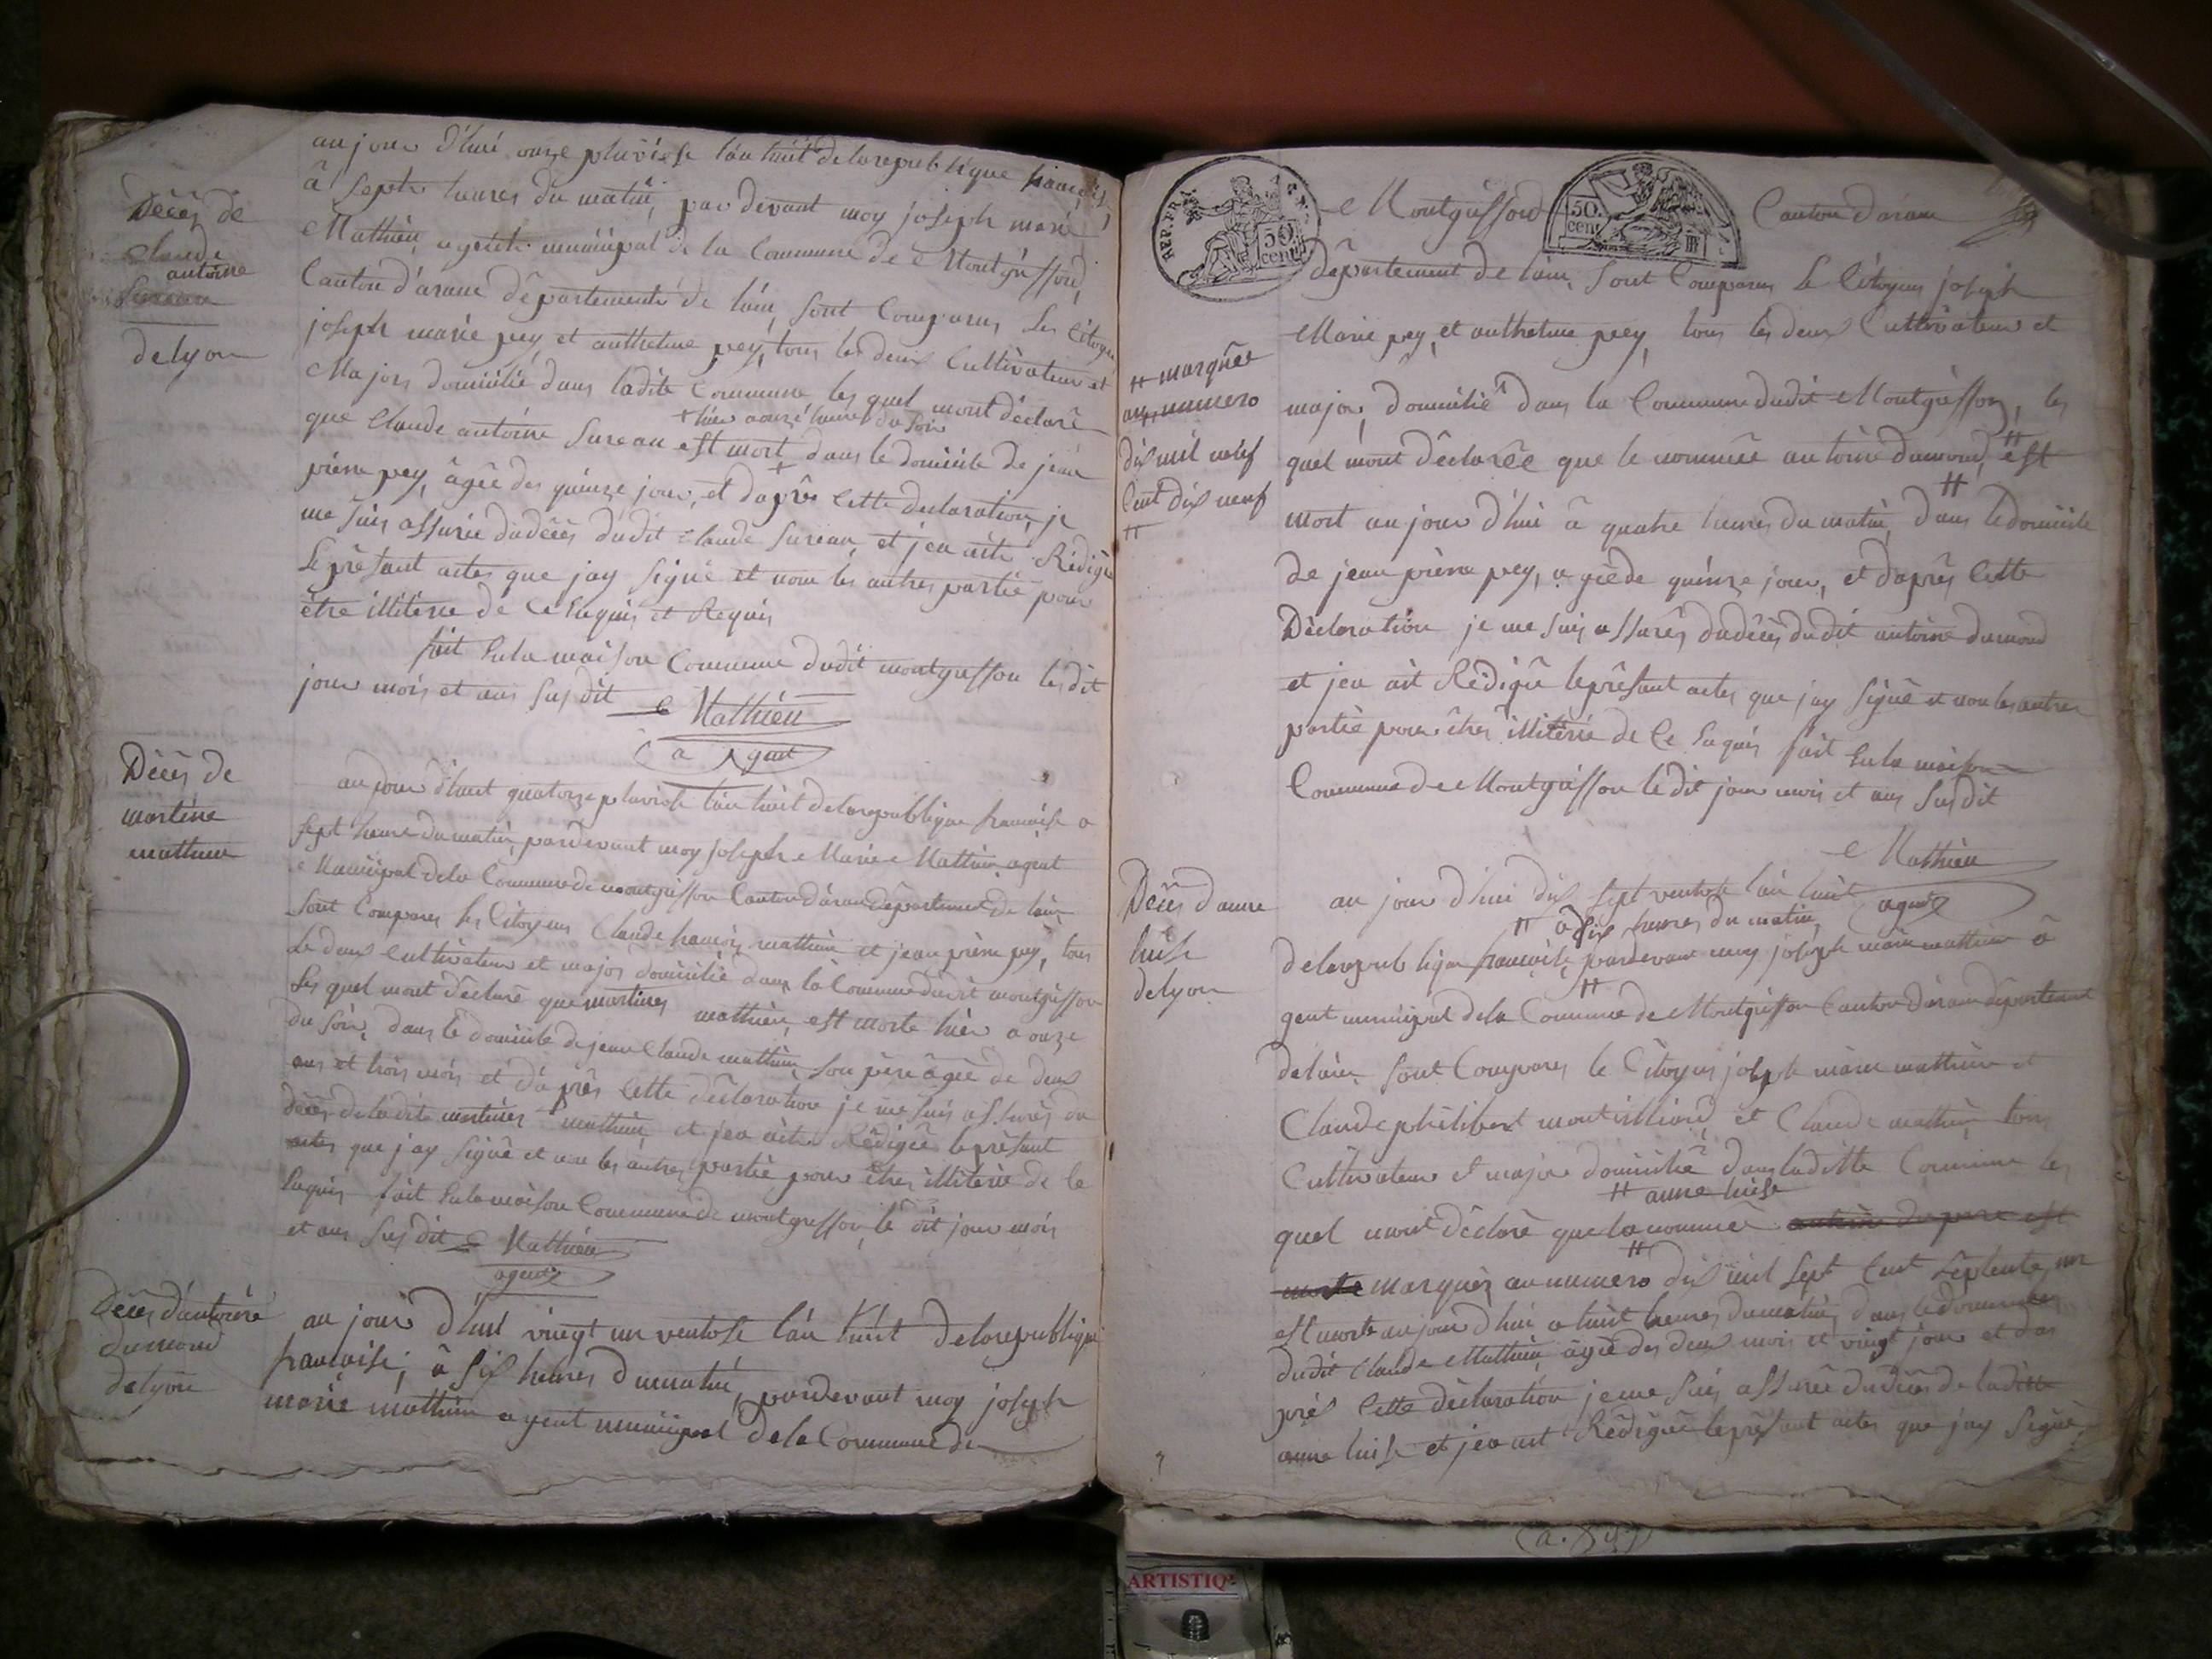 au jour d'hui onze pluviose l'an huit de la republique francoise,
Décés de
claude
antoine
sureau
de lyon
â septe heures du matin, par devant moy joseph marie
Mathieu agente municipal de la Commune de Montgriffond,
Canton d'arane dêpartemente de l'ain, sont Comparus Les Citoyen
joseph marie pey et anthelme pey, tous les deux Cultivateur et
Majors domicilié dans ladite Commune, les quel mont dêclarê
+ hier a onze heures du soir
que Claude antoine Sureau est mort dans le domicile de jean
piere pey, âgée des quinze jour, et d'aprês Cette declaration, je
me suis assurée du décès dudit claude sureau, et j'en aite Rédigé
Le présant actes que jay signé et nom les autres partie pour
être illiterée de Ce Enquis et Requis
fait En la maison Commune dudit montgriffon les dit
jour mois et ans susdit Mathieu
a Agent
Dècès de
martine
mathieu
au jour d'huit quatorze pluviose l'an huit de la republique francoise a
sept heure du matin, pardevant moy joseph Marie Mathieu agent
Municipal de la Commune de montgriffon Canton d'aran département de l'ain
sont Comparus les Citoyens Claude francois mathieu et jean piere pey, tous
Le deux Cultivateur et major domicilié dans la Commune dudit montgriffon
les quel mont dêclaré que martines mathieu, est morte hier a onze
du soir, dans le domicile de jean Claude mathieu son père âgée de deux
ans et trois mois et d'aprês Cette dêclaration je me suis assurés du
décès de la dite martines mathieu et jen aite Rédigée le présant
actes que jay signé et non les autres partie pour êtres illiterée de Ce
Enquis fait En la maison Commune de montgriffon, le dit jour mois
et ans susdit Mathieu
agent
Décès d'antoine
dumond
de lyon
au jour d'hui vingt un ventose l'an huit de la republique
francoise, â six heures du matin, pardevant moy joseph
marie mathieu agent municipal de la Commune de
REP. FRA.
50 cent
Montgriffond
50. cent
Canton daran
dêpartement de lain, sont Comparus Le Citoyens joseph
Marie pey, et anthelme pey, tous les deux Cultivateur et
major, domicilié dans la Commune dudit Montgriffon, les
quel mont dêclarée que le nommée antoine dumond, # est
# marquée
au numero
dix mil neuf
Cent dix neuf
#
mort au jour d'hui â quatre heures du matin dans le domicile
de jean piere pey, agée de quinze jour, et daprês Cette
Dèclaration je me suis assurés du décès dudit antoine dumond
et jen ait Rêdigé le présant actes que jay signé et non les autres
partie pour êtres illiterée de Ce Enquis fait En la maison
Commune de Montgriffon le dit jour mois et ans susdit
Mathieu
agent
Décès d'anne
luise
de lyon
au jour d'hui dix sept ventose l'an huit
# â dix heures du matin,
de la republique francoise, pardevant moy joseph marie mathieu a
gent municipal de la Commune de Montgriffon Canton daran département
de lain, sont Comparus le Citoyens joseph marie mathieu et
Claude philibert montilliard et Claude mathieu, tous
Cultivateur et major domicilié dans laditte Commune les
# anne luise
quel mont dêclaré que la nommée
marquée au numero dix mil sept Cent septente un
est morte au jour d'hui a huit heures du matin, dans le domicile
dudit Claude Mathieu âgée des deux mois et vingt jour et da
prés Cette dèclaration je me suis assurée du décès de laditte
anne luise et jen ait Rêdigée le présant actes que jay signé
ARTISTIQ